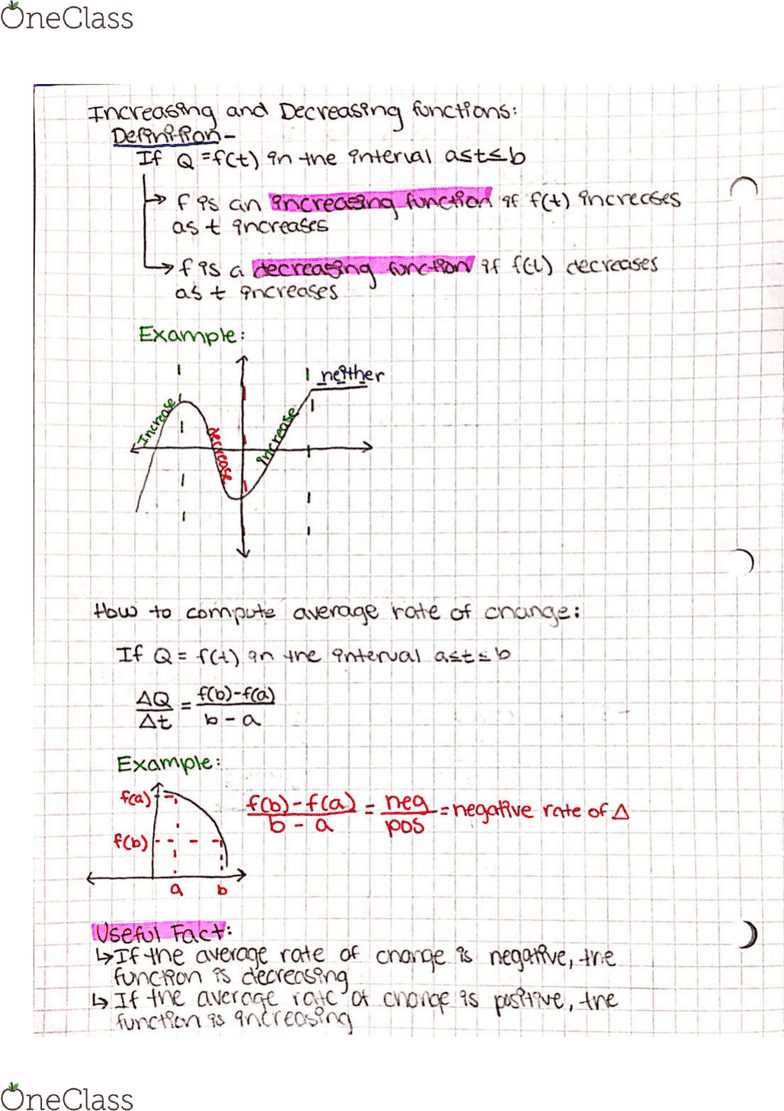 OneClass
Increasing and Decreasing functions:
Definition-
If Q = f(t) in the interval a≤t≤b
→ f is an increasing function if f(t) increases
as t increases
→ f is a decreasing function if f(t) decreases
as t increases
Example:
neither
Increase
decrease
increase
How to compute average rate of change:
If Q = f(t) in the interval a≤t≤b
ΔQ/Δt = f(b)-f(a)/b-a
Example:
f(a)
f(b)
a b
f(b)-f(a)/b-a = neg/pos = negative rate of Δ
Useful Fact:
↳ If the average rate of change is negative, the
function is decreasing
↳ If the average rate of change is positive, the
function is increasing
OneClass